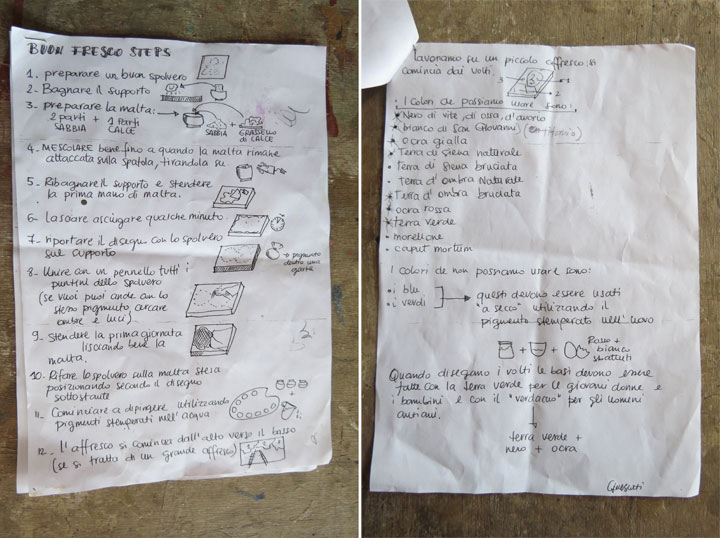 BUON FRESCO STEPS
1- preparare un buon spolvero
2- Bagnare il supporto
3- preparare la malta:
2 parti + 1 parti
SABBIA CALCE
SABBIA + GRASSELLO
di CALCE
4- MESCOLARE bene fino a quando la malta rimane
attaccata sulla spatola, tirandola su
5- Ribagnare il supporto e stendere
la prima mano di malta.
6- Lasciare asciugare qualche minuto.
7- riportare il disegno con lo spolvero
sul supporto
pigmento
dentro una
8- Unire con un pennello tutti i
puntini dello spolvero
(se vuoi puoi anche con lo
stesso pigmento cercare
ombre e luci)
9- Stendere la prima giornata
lisciando bene la
malta.
10- Rifare lo spolvero sulla malta stesa
posizionando secondo il disegno
sottostante
11- Cominciare a dipingere utilizzando
pigmenti stemperati nell'acqua
12- L'affresco si comincia dall'alto verso il basso
(se si tratta di un grande affresco)
lavoriamo su un piccolo affresco si
comincia dai volti.
3 1
2
I colori che possiamo usare sono:
Nero di vite, di ossa, d'avorio
bianco di San Giovanni
ocra gialla
Terra di siena naturale
terra di siena bruciata
Terra d'ombra Naturale
Terra d'ombra bruciata
ocra rossa
terra verde
morellone
caput mortum
I colori che non possiamo usare sono:
i blu
i verdi
questi devono essere usati
"a secco" utilizzando il
pigmento stemperato nell'uovo
+ +
Rosso +
bianco
sbattuti
Quando disegiamo i volti le basi devono essere
fatte con la terra verde per le giovani donne e
i bambini e con il "verdaccio" per gli uomini
anziani.
terra verde +
nero + ocra